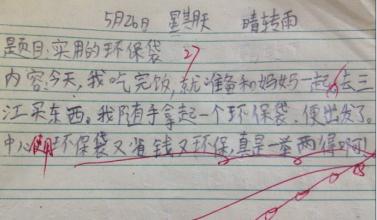 5月26日 星期肤 晴转雨
是页目:实用的环保袋 27
内容:今天,我吃完饭,就准备和妈妈一起去三
江买东西。我随手拿起一个环保袋,便出发了。
中心:使用环保袋又省钱又环保,真是一举两得啊!